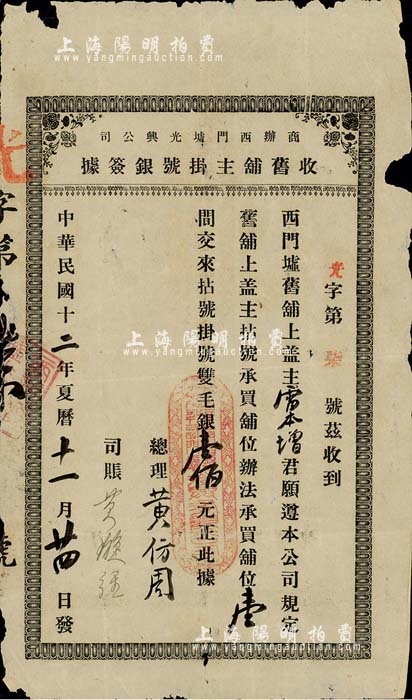 上海陽明拍賣
www.yangmingauction.com
商辦西門墟光興公司
收舊舖主掛號銀簽據
光字第柒號茲收到
西門墟舊舖上盖主君願遵本公司規定
舊舖上盖主拈號承買舖位辦法承買舖位壹
間交來拈號掛號雙毛銀壹佰元正此據
總理黃仿周
司賬黃
中華民國十二年夏曆十一月廿四日發
光字第
號
上海陽明拍賣
www.yangmingauction.com
上海陽明拍賣
www.yangmingauction.com